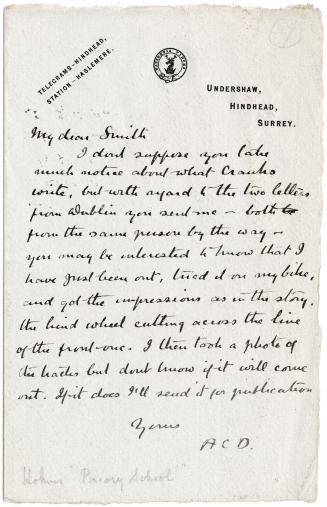 TELEGRAMS-HINDHEAD,
STATION-HASLEMERE.
UNDERSHAW,
HINDHEAD,
SURREY.
My dear Smith
I dont suppose you take
much notice about what Cranks
write, but with regard to the two letters
from Dublin you send me - both
from the same person by the way -
you may be interested to know that I
have just been out, tried it on my bike,
and got the impressions as in the story,
the hind wheel cutting across the line
of the front-one. I then took a photo of
the tracks but dont know if it will come
out. If it does I'll send it for publication
Yours
A C D.
"Priory School"